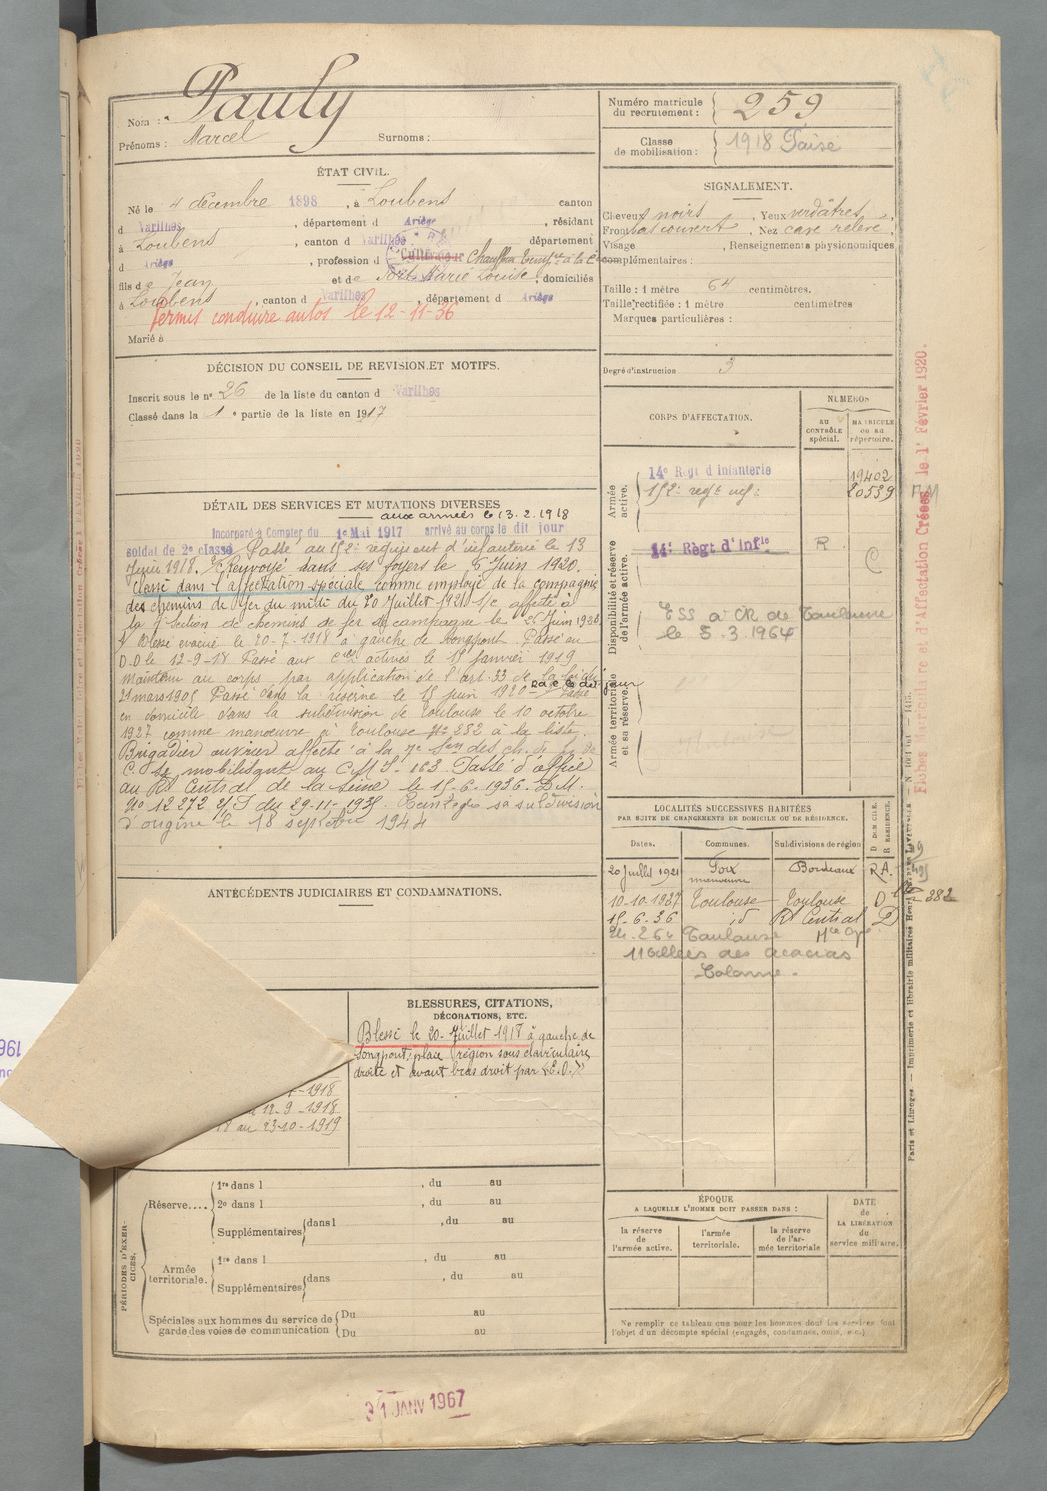 Nom : Pauly
Prénoms : Marcel Surnoms :
ÉTAT CIVIL.
Né le 4 décembre 1898, à Loubens canton
d Varilhes, département d Ariège, résidant
à Loubens, canton d Varilhes département
d Ariège, profession d Cultivateur Chauffeur
fils de Jean et de Marie Louise, domiciliés
à Loubens, canton d Varilhes, département d Ariège
Permis conduire autos le 12-11-36
Marié à
DÉCISION DU CONSEIL DE REVISION ET MOTIFS.
Inscrit sous le n° 26 de la liste du canton d Varilhes
Classé dans la 1e partie de la liste en 1917
DÉTAIL DES SERVICES ET MUTATIONS DIVERSES
aux armées le 13.2.1918
Incorporé à Compter du 1e Mai 1917 arrivé au corps le dit jour
soldat de 2e classe Passé au 152e régiment d'infanterie le 13
1918. Renvoyé dans ses foyers le 6 Juin 1920.
Classé dans l'affectation spéciale comme employé de la compagnie
des chemins de fer du midi du 20 Juillet 1921 S/c affecté à
la section de chemins de fer de campagne le 25 Juin 1926
Blessé évacué le 20-7-1918 à gauche de Longpont Passé au
D.D le 12-9-18 Passé aux Cies actives le 15 Janvier 1919
Maintenu au corps par application de l'art 33 de la loi du
21 mars 1905 Passé dans la réserve le 15 Juin 1920 Passé
en domicile dans la subdivision de Toulouse le 10 octobre
1927 comme manoeuvre à Toulouse N° 282 à la liste.
Brigadier ouvrier affecté à la 7e Son des ch. de f. de
C. se mobilisant au C.M.I. 163 Passé d'office
au Rt Central de la Seine le 15-6-1936 D.M.
N° 12272 du 29-11-1935. Réintégré sa subdivision
d'origine le 18 septembre 1944
ANTÉCÉDENTS JUDICIAIRES ET CONDAMNATIONS.
BLESSURES, CITATIONS,
DÉCORATIONS, ETC.
Blessé le 20 Juillet 1918 à gauche de
Longpont, plaie région sous claviculaire
droite et avant bras droit par E.O.
-1918
12-9-1918
18 au 23-10-1919
PÉRIODES D'EXERCICES.
Réserve....
1re dans l , du au
2e dans l , du au
Supplémentaires dans l , du au
Armée territoriale.
1re dans l , du au
Supplémentaires dans , du au
Spéciales aux hommes du service de
garde des voies de communication
Du au
Du au
31 JANV 1967
Numéro matricule
du recrutement : 259
Classe
de mobilisation : 1918
SIGNALEMENT.
Cheveux noirs, Yeux verdâtres,
Front bas couvert, Nez cave relevé,
Visage , Renseignements physionomiques
complémentaires :
Taille : 1 mètre 64 centimètres.
Taille rectifiée : 1 mètre centimètres
Marques particulières :
Degré d'instruction 3
CORPS D'AFFECTATION.
NUMÉROS
au
CONTRÔLE
spécial.
MATRICULE
ou au
répertoire.
Armée
active.
14e Régt d Infanterie 19402
152e regt inf 20539
Disponibilité et réserve
de l'armée active.
14e Règt d'Infie R
C
à CR de Toulouse
le 5.3.1964
Armée territoriale
et sa réserve.
LOCALITÉS SUCCESSIVES HABITÉES
PAR SUITE DE CHANGEMENTS DE DOMICILE OU DE RÉSIDENCE.
Dates. Communes. Subdivisions de région D DOMICILE. R RÉSIDENCE.
20 Juillet 1921 Foix Bordeaux R.A.
manoeuvre
10-10-1927 Toulouse Toulouse D 282
15-6-36 id Rt Central D
Toulouse
11 allées des Acacias
ÉPOQUE
A LAQUELLE L'HOMME DOIT PASSER DANS :
la réserve
de
l'armée active.
l'armée
territoriale.
la réserve
de l'ar-
mée territoriale
DATE
de
LA LIBÉRATION
du
service militaire.
Ne remplir ce tableau que pour les hommes dont les services font
l'objet d'un décompte spécial (engagés, condamnés, omis, etc.)
Fiches Matriculaire et d'Affectation Créées le 1r Février 1920.
Paris et Limoges. — Imprimerie et librairie militaires Henri CHARLES-LAVAUZELLE